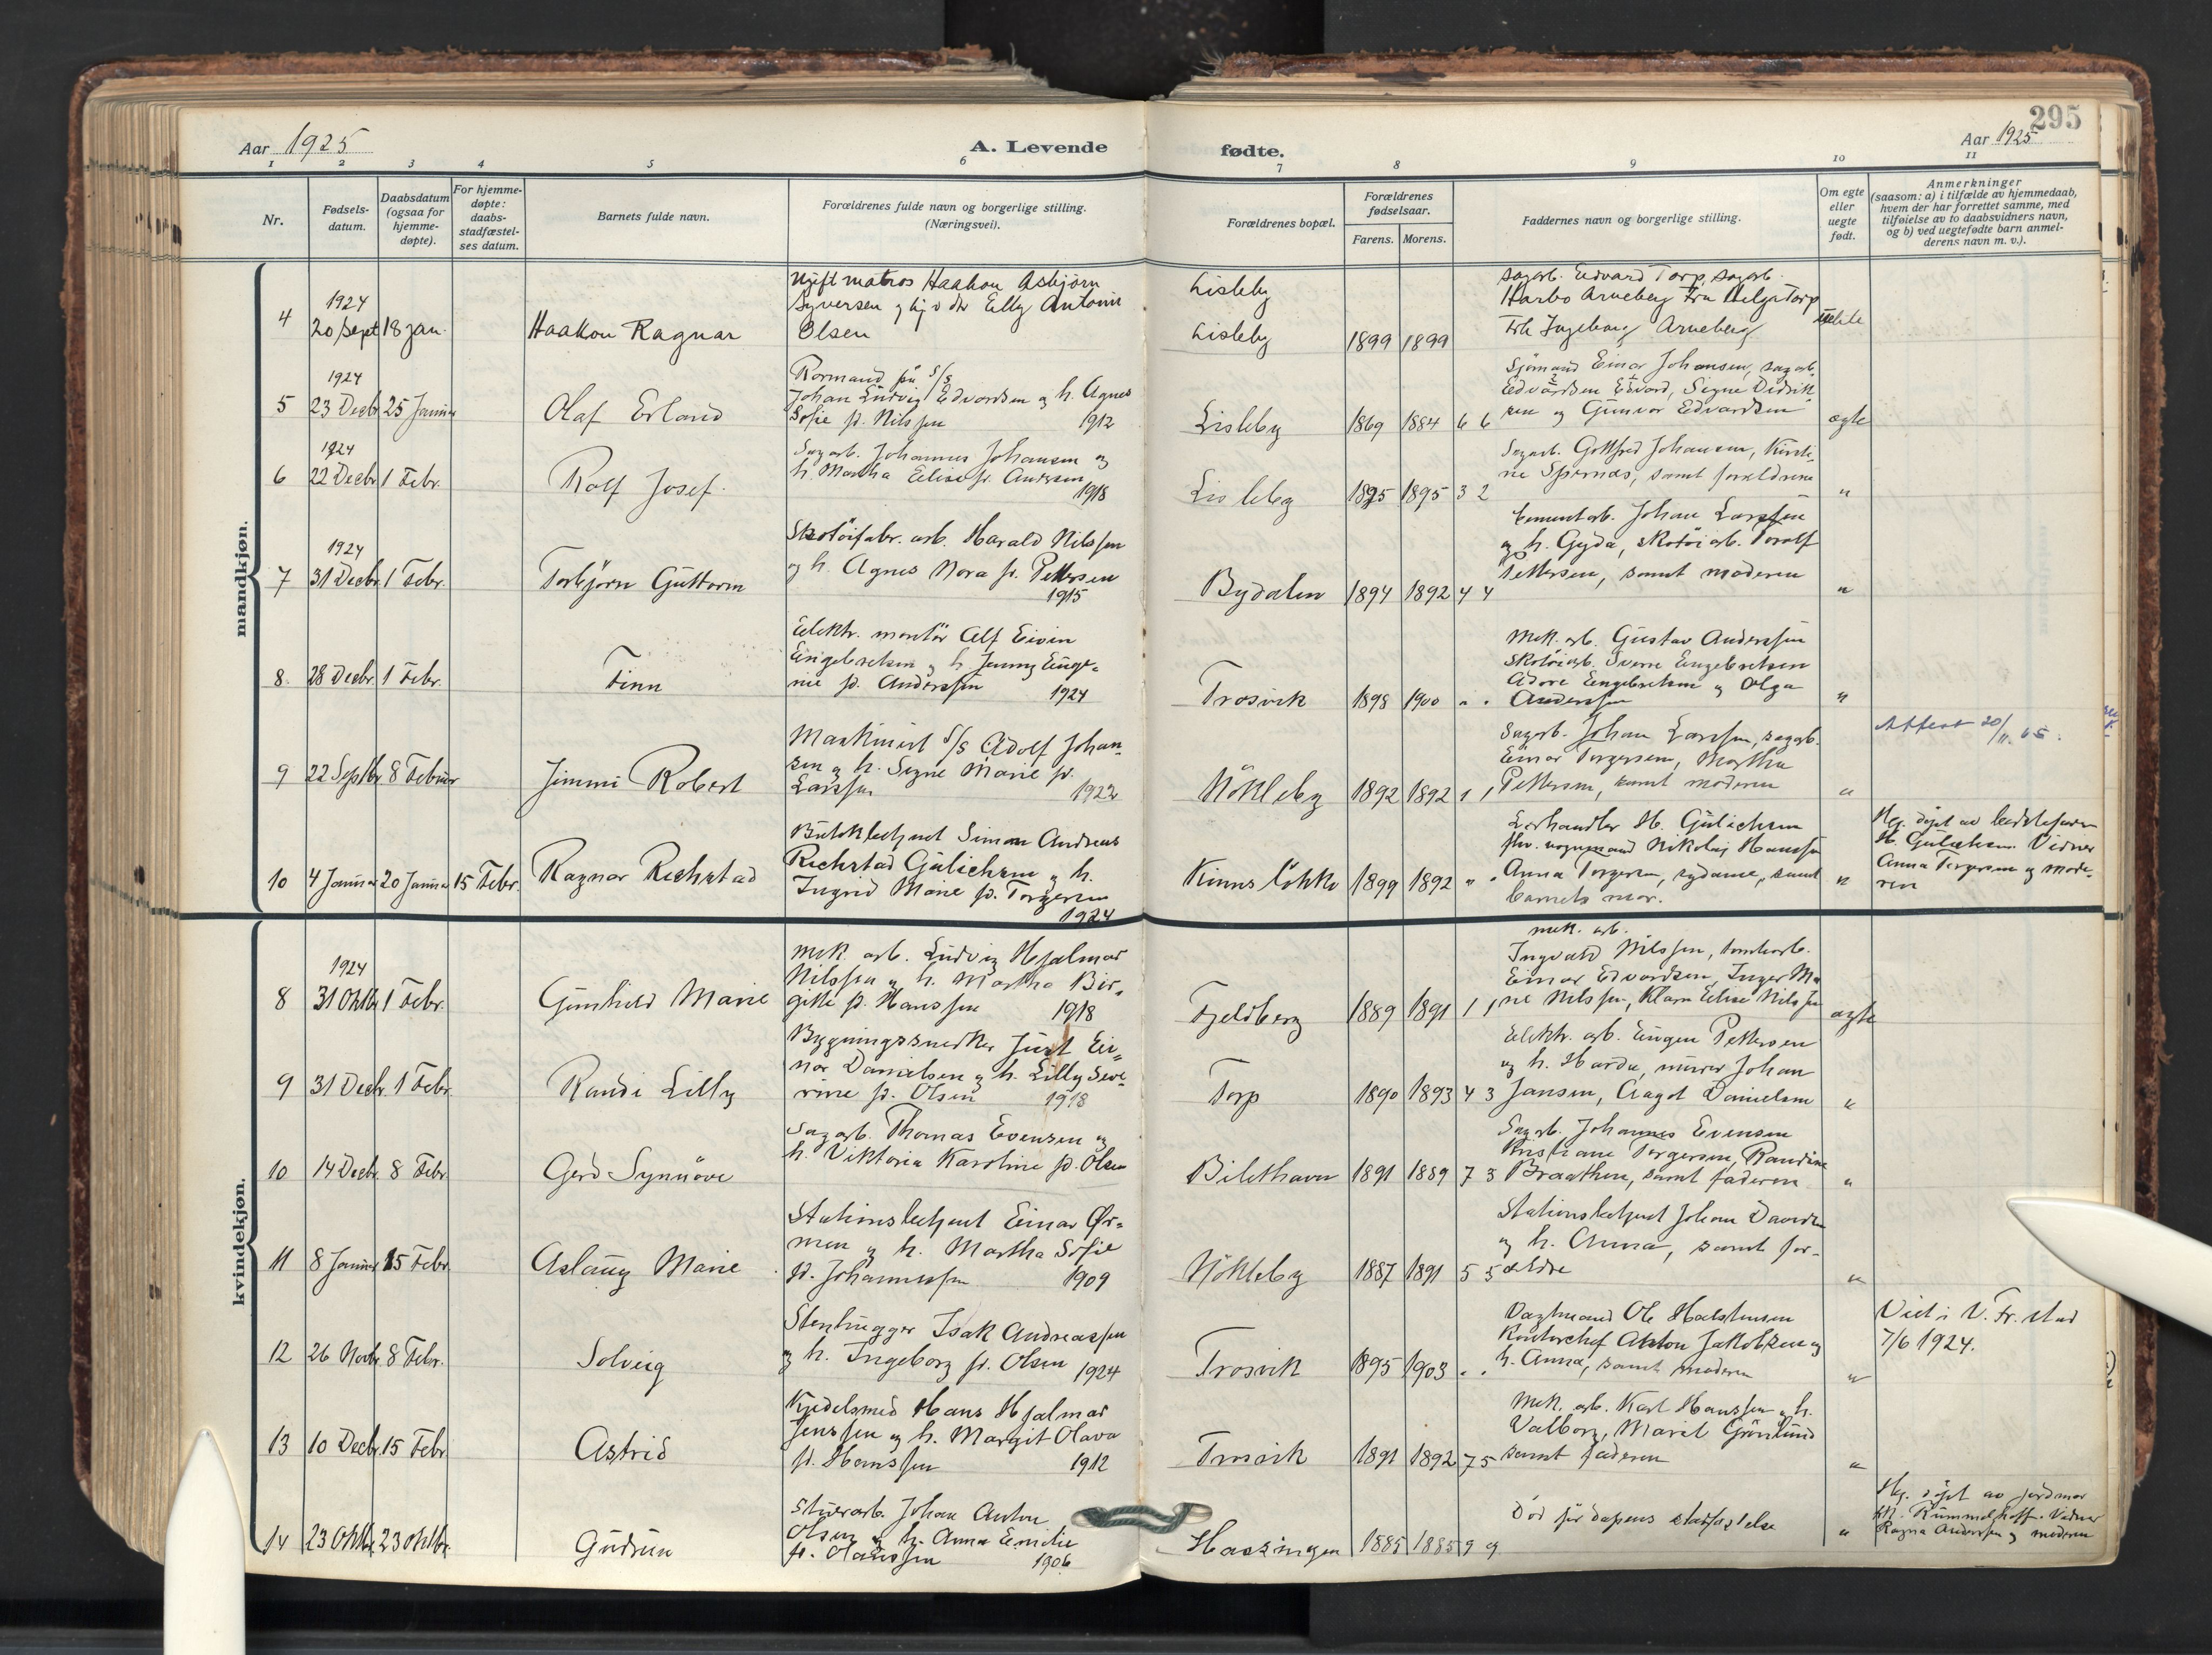 295
Aar 1925
A. Levende
fødte.
Aar 1925
1 2 3 4 5 6 7 8 9 10 11
Nr.
Fødsels-
datum.
Daabsdatum
(ogsaa for
hjemme-
døpte).
For hjemme-
døpte:
daabs-
stadfæstel-
ses datum.
Barnets fulde navn.
Forældrenes fulde navn og borgerlige stilling.
(Næringsvei).
Forældrenes bopæl.
Forældrenes
fødselsaar.
Farens. Morens.
Faddernes navn og borgerlige stilling.
Om egte
eller
uegte
født.
Anmerkninger
(saasom: a) i tilfælde av hjemmedaab,
hvem der har forrettet samme, med
tilføielse av to daabsvidners navn,
og b) ved uegtefødte barn anmel-
derens navn m. v.).
mandkjøn.
4
1924
20 Sept 18 jan.
Haakon Ragnar
Ugift matros Haakon Asbjørn
Syversen Elly Antonie
Olsen
Lisleby
Lisleby
1899 1899
sagarb. Edvard Torp, sagarb.
Harbo Arneberg Fru Helga Torp
Frk Ingeborg Arneberg
5
1924
23 Decbr 25 Januar
Olaf Erland
Rormand på S/S
Johan Ludvig Edvardsen og h. Agnes
Sofie f. Nilssen 1912
Lisleby
1869 1884 6 6
Sjømand Einar Johansen, sagarb.
Edvardsen Edvard, Signe Didrik
sen og Gunvor Edvardsen
ægte
6
1924
22 Decbr 1 Febr.
Rolf Josef.
Sagarb. Johannes Johansen og
h. Martha Elise f. Andersen
1918
Lisleby
1895 1895 3 2
Sagarb. Gottfred Johansen, Kirsti-
ne samt forældrene
"
7
1924
31 Decbr. 1 Febr.
Torbjørn Guttorm
Skotöifabr. arb. Harald Nilssen
og h. Agnes Nora f. Pettersen
1915
Bydalen
1894 1892 4 4
Cementarb. Johan Larssen
og h. Gyda, skotöiarb. Torolf
Pettersen, samt moderen
"
8.
28 Decbr. 1 Febr.
Finn
Elektr. montör Alf Eivin
Engebretsen og h. Jenny Euge-
nie f. Anderssen 1924
Trosvik
1898 1900 " "
Mek. arb. Gustav Anderssen
Skotöiarb. Sverre Engebretsen
Engebretsen og Olga
Anderssen
"
9
22 Septbr. 8 Februar
Jimmi Robert
Maskinist S/S Adolf Johan-
sen og h. Signe Marie f.
Larssen 1922
Nökleby
1892 1892 1 1
Sagarb. Johan Larssen, sagarb.
Einar Torgersen, Martha
Pettersen, samt moderen
"
Attest 20/11. 65.
10
4 Januar 20 Januar 15 Febr.
Ragnar Richstad
Butikbetjent Simon Andreas
Richstad Gulichsen og h.
Ingrid Marie f. Torgersen
1924
Kinns lökke
1899 1892 " "
H. Gulichsen
fhv. vognmand Nikolaj Hanssen
Anna Torgersen, sydame, samt
barnets mor.
"
Hj. döpt av bedstefaren
H. Gulichsen. Vidner
Anna Torgersen og mode-
ren
kvindekjøn.
8
1924
31 Oktbr 1 Febr.
Gunhild Marie
Mek. arb. Ludvig Hjalmar
Nilssen og h. Martha Bir-
gitte f. Hanssen 1918
Fjeldberg
1889 1891 1 1
mek. arb.
Ingvald Nilssen, tomtearb.
Einar Edvardsen, Inger Ma
rie Nilssen, Klara Elise Nilssen
ægte
9
31 Decbr 1 Febr.
Randi Lilly
Bygningssnedker Just Ei-
nar Danielsen og h. Lilly Seve-
rine f. Olsen 1918
Torp
1890 1893 4 3
Elektr. arb. Eugen Pettersen
og h. Harda, murer Johan
Jansen, Aagot Danielsen
"
10
14 Decbr. 8 Febr
Gerd Synnöve
Sagarb. Thomas Evensen og
h. Viktoria Karoline f. Olsen
1891 1889 7 3
Sagarb. Johannes Evensen
Kristiane Torgersen, Randine
Braathen, samt faderen
"
11
8 Januar 15 Febr.
Aslaug Marie
Stationsbetjent Einar Ør-
men og h. Martha Sofie
f. Johannessen 1909
Nökleby
1887 1891 5 5
Stationsbetjent Johan
og h. Anna, samt for-
ældre
"
12
26 Novbr. 8 Febr.
Solveig
Stenhugger Isak Andreassen
og h. Ingeborg f. Olsen 1924
Trosvik
1895 1903 " "
Vagtmand Ole Halstensen
Kontorchef Anton Jakobsen og
h. Anna, samt moderen
"
Viet i V. Fr. stad
7/6 1924.
13
10 Decbr. 15 Febr
Astrid
Kjedelsmed Hans Hjalmar
Jenssen og h. Margit Olava
f. Hanssen 1912
Trosvik
1891 1892 7 5
Mek. arb. Karl Hanssen og h.
Valborg, Marit Grönlund
samt faderen
"
14
23 Oktbr. 23 Oktbr.
Gudrun
Stuerarb. Johan Anton
Olsen og h. Anna Emilie
f. 1906
Hassingen
1885 1885 9 9
Död för dapens stadfæstelse
"
Hj. döpt av jordmor
Rummelhoff. Vidner
Ragna Andersen og moderen